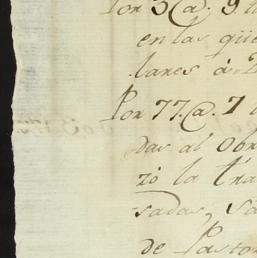 Por 5@. 9 l
en las que
lares á 2
Por 77.@. 7 l
das al Obr
zó la tra
sadas, sa
de Pastor